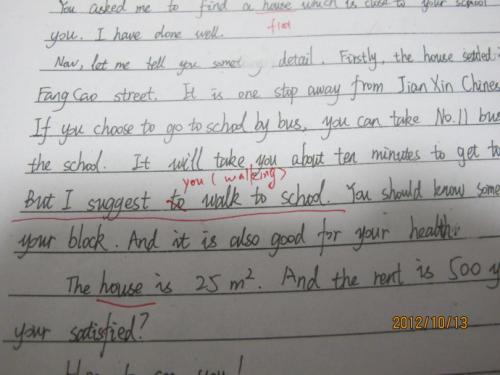 You asked me to find a house which is close to your school
you. I have done well.
flat
Now, let me tell you some detail. Firstly, the house settled
FangCao street. It is one stop away from JianXin Chines
If you choose to go to school by bus, you can take No.11 bus
the school. It will take you about ten minutes to get to
you (walking)
But I suggest to walk to school. You should know some
your block. And it is also good for your health.
The house is 25 m². And the rent is 500 y
your satisfied?
2012/10/13